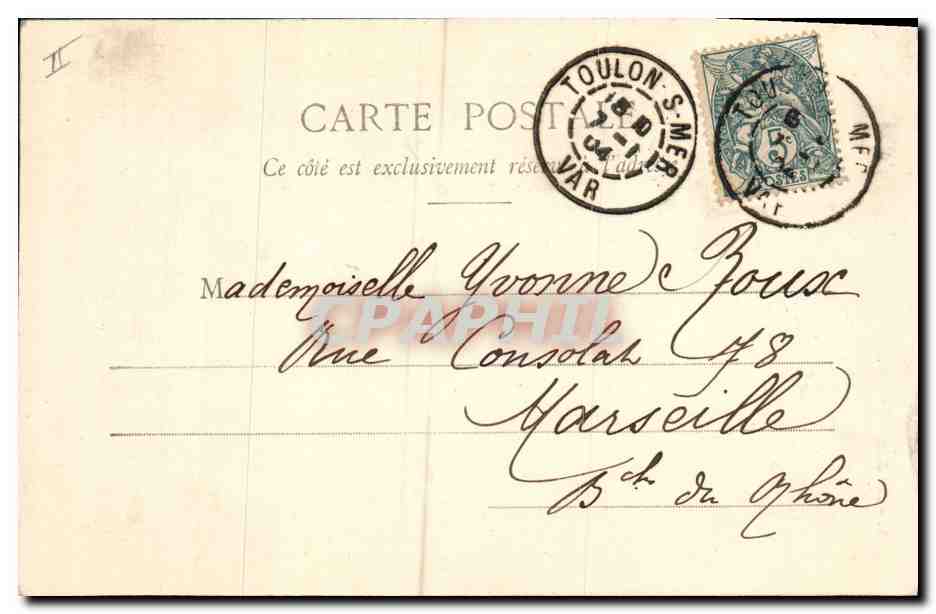 II
CARTE POSTALE
Ce côté est exclusivement réservé à l'adresse
TOULON-S-MER
7-1
04
VAR
5
POSTES
Mademoiselle Yvonne Roux
CPAPHIL
Rue Consolat 78
Marseille
Bch du Rhône